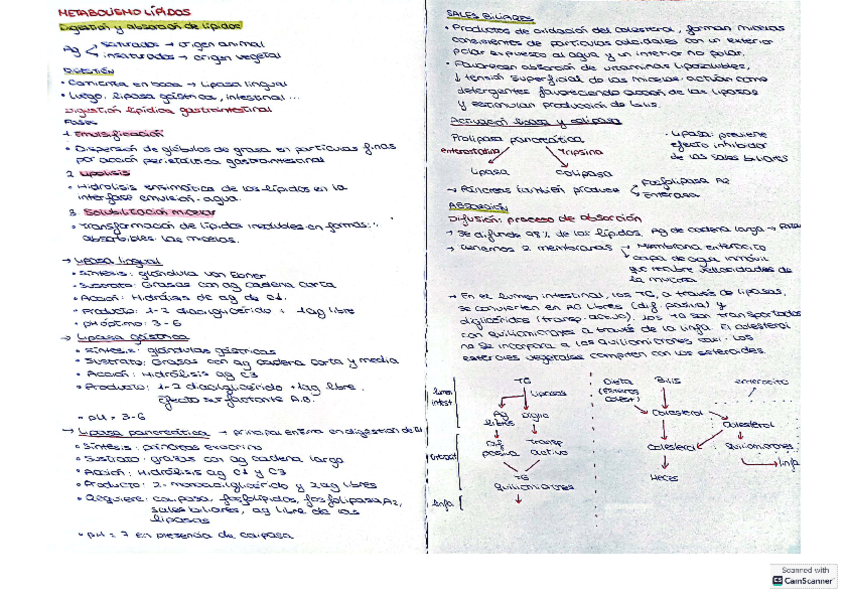 METABOLISMO LÍPIDOS
Digestión y absorción de lípidos
Ag saturados → origen animal
insaturados → origen vegetal
Digestión
• Comienza en boca → lipasa lingual
• Luego: lipasa gástrica, intestinal...
Digestión lipídica gastrointestinal
Fases
1. Emulsificación
• Dispersión de glóbulos de grasa en partículas finas
por acción peristáltica gastrointestinal
2. Lipólisis
• Hidrólisis enzimática de los lípidos en la
interfase emulsión-agua.
3. Solubilización micelar
• Transformación de lípidos insolubles en formas
absorbibles: las micelas.
→ Lipasa lingual
• Síntesis: glándula Von Ebner
• Sustrato: Grasas con ag cadena corta
• Acción: Hidrólisis de ag de C1.
• Producto: 1-2 diacilglicérido + 1ag libre
• pH óptimo: 3-6
→ Lipasa gástrica
• Síntesis: glándulas gástricas
• Sustrato: Grasas con ag cadena corta y media
• Acción: Hidrólisis ag C3
• Producto: 1-2 diacilglicérido + 1ag libre.
Efecto surfactante A.B.
• pH = 3-6
→ Lipasa pancreática → principal enzima en digestión de
• Síntesis: páncreas exocrino
• Sustrato: grasas con ag cadena larga
• Acción: Hidrólisis ag C1 y C3
• Producto: 2-monoacilglicérido y 2ag libres
• Requiere: colipasa, fosfolípidos, fosfolipasa A2,
sales biliares, ag libre de las
lipasas
• pH = 7 en presencia de colipasa
SALES BILIARES
• Productos de oxidación del colesterol, forman micelas
consistentes de partículas coloidales con un exterior
polar expuesto al agua y un interior no polar.
• Favorecen absorción de vitaminas liposolubles,
↓ tensión superficial de las micelas: actúan como
detergentes favoreciendo acción de las lipasas
y estimulan producción de
Activación lipasa y colipasa
Prolipasa pancreática
enterostasina Tripsina
Lipasa Colipasa
• Lipasa: previene
efecto inhibidor
de las sales biliares
→ Páncreas también produce Fosfolipasa A2
ABSORCIÓN
Difusión: proceso de absorción
→ Se difunde 98% de los lípidos. Ag de cadena larga →
→ Tenemos 2 membranas → Membrana enterocito
capa de agua inmóvil
que recubre vellocidades de
la mucosa
→ En el lumen intestinal, los TG, a través de lipasas,
se convierten en AG libres (dif. pasiva) y
diglicéridos (transp. activo). Los TG son transportados
con quilomicrones a través de la linfa. El colesterol
no se incorpora a los quilomicrones
esteroles vegetales compiten con los esteroides.
lumen
intest
TG
Lipasas
Ag
libres
Diglic
Dif
pasiva
Transp
activo
TG
Quilomicrones
linfa
Dieta Bilis enterocito
Colesterol
Colesterol
Colesterol Quilomicrones
Linfa
Heces
Scanned with
CS CamScanner